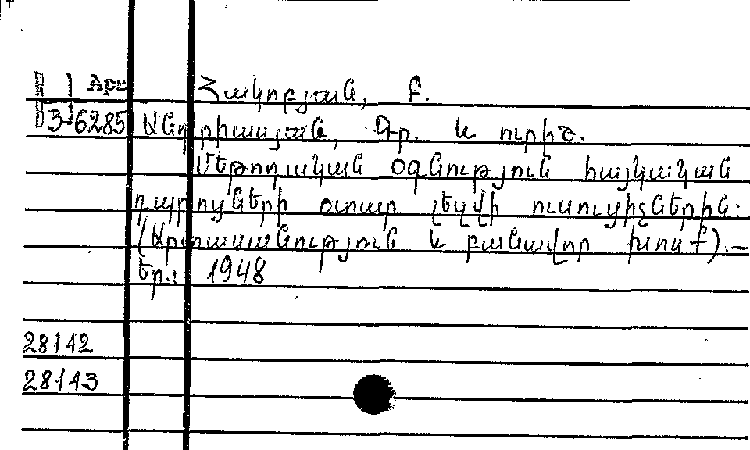 Арм Հակոբյան, Բ.
3-6285 Անդրիասյան, Գր. և ուրիշ.
Մեթոդական օգնություն հայկական
դպրոցների օտար լեզվի ուսուցիչներին:
(Արտասանություն և բանավոր խոսք).—
Եր.: 1948
28142
28143